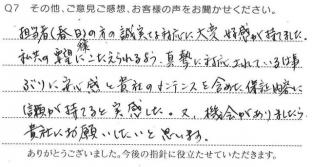 Q7 その他、ご意見ご感想、お客様の声をお聞かせください。
担当者(春日)の方の誠実な対応に大変好感が持てました。
私共の要望にこたえられるよう、真摯に対応されている仕事
ぶりに安心感と貴社のメンテナンスを含めた保証内容に
信頼が持てると実感した。又、機会がありましたら
貴社にお願いしたいと思います。
ありがとうございました。今後の指針に役立たせていただきます。